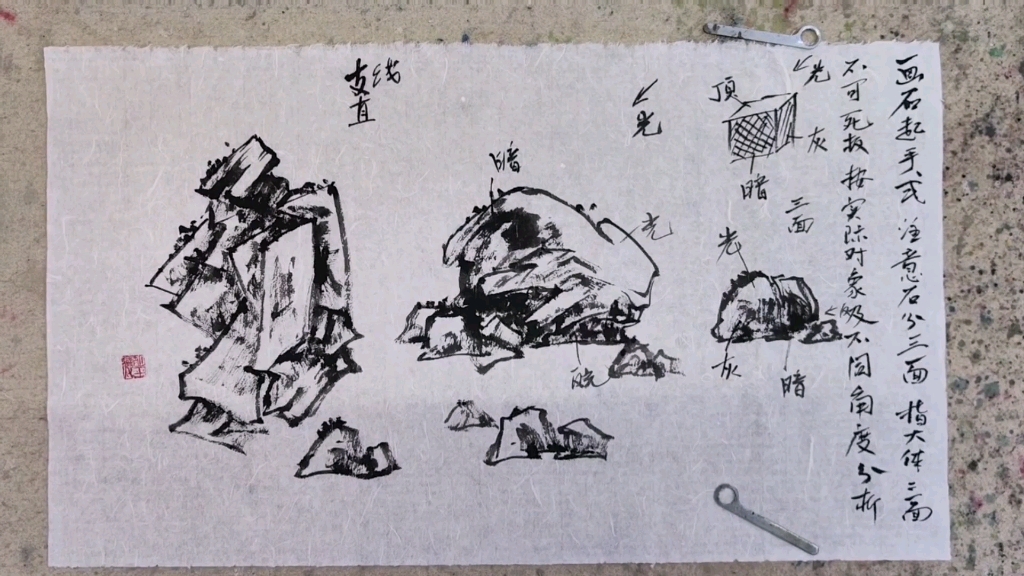 画石起手式 注意石分三面 指大体三面
不可死板 按实际对象及不同角度分析
光
顶
灰
暗
三面
光
灰
暗
光
暗
光
直线